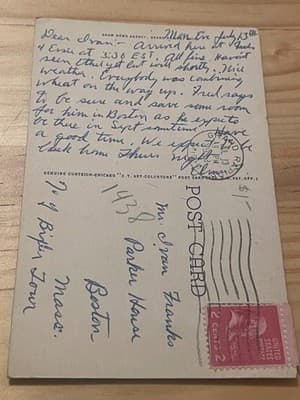 Dear Ivan:- Arrived here at Fred's
& Evie at 5:30 EST. All fine. Haven't
seen Ethel yet but will shortly. Nice
weather. Everybody was combining
wheat on the way up. Fred says
to be sure and save some room
for him in Boston as he expects
to be there in Sept sometime. Have
a good time. We expect to be
back home Thurs night.
Elmer
GENUINE CURTEICH-CHICAGO
POST CARD
1938
$1-
Mr. Ivan Franks
Parker House
Boston
Mass.
UNITED STATES
2 CENTS 2